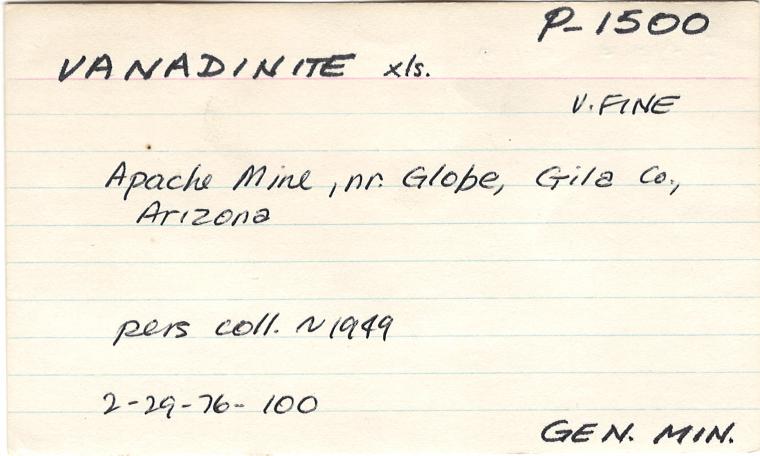 P-1500
VANADINITE xls.
V. FINE
Apache Mine, nr. Globe, Gila Co.,
Arizona
pers coll. ~ 1949
2-29-76- 100
GEN. MIN.